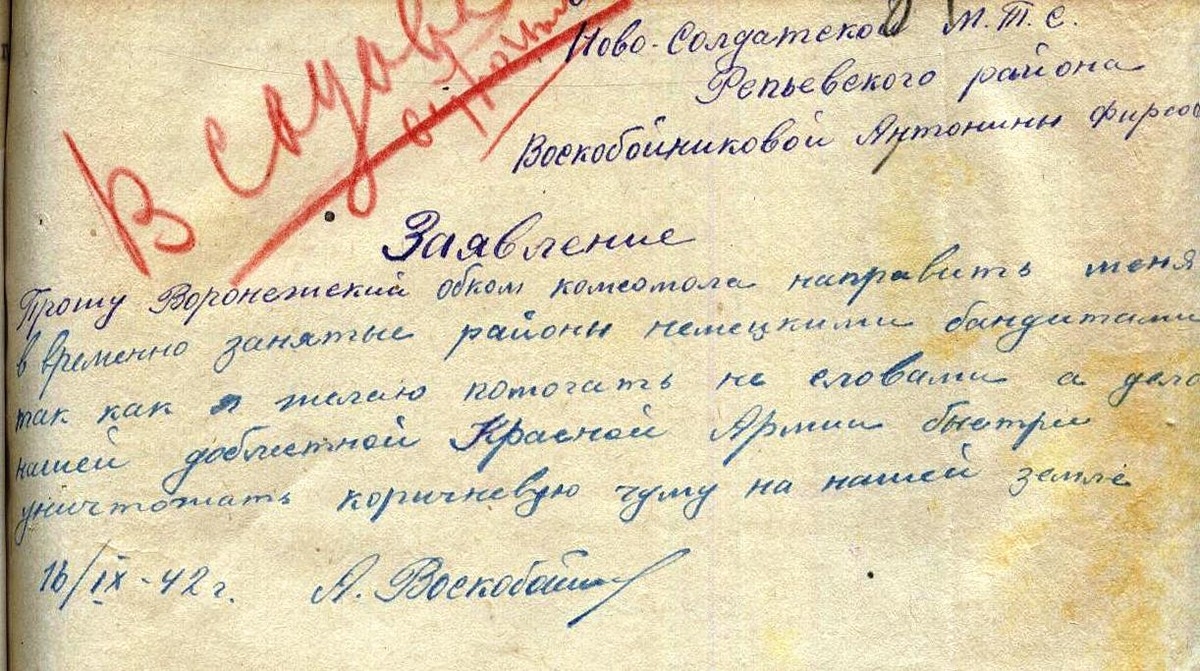 Ново-Солдатской М.Т.С.
Репьевского района
Воскобойниковой Антонины Фирсов
В
Заявление
Прошу Воронежский обком комсомола направить меня
в временно занятые районы немецкими бандитами
так как я желаю помогать не словами а дело
нашей доблестной Красной Армии быстри
уничтожать коричневую чуму на нашей земле
16/IX-42 г. А. Воскобойн